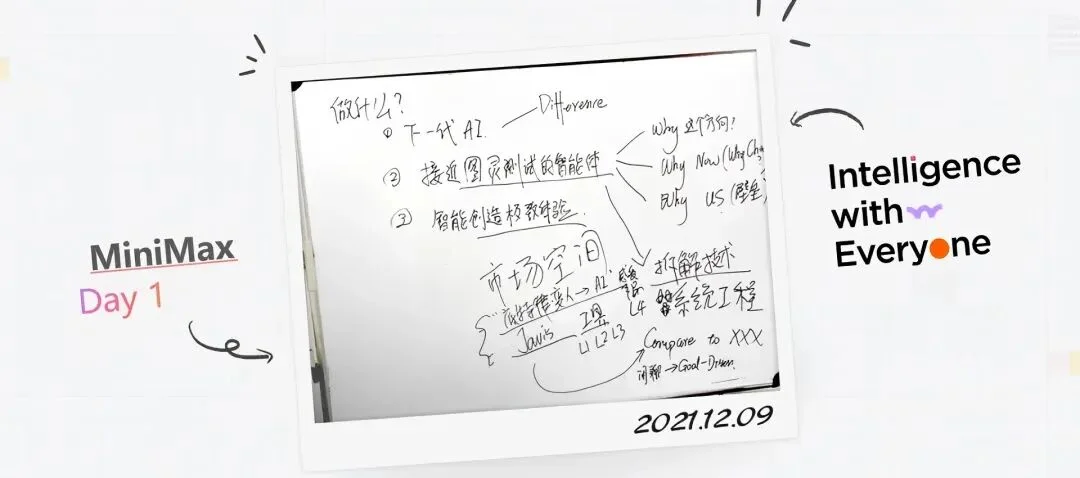 MiniMax
Day 1
做什么?
① 下一代 AI — Difference
② 接近图灵测试的智能体
Why 这个方向!
Why Now (Why Ch
Why US (壁垒)
③ 智能创造极致体验
市场空间
人→AI
Javis 工具
L1 L2 L3
L4
拆解技术
系统工程
Compare to XXX
闲聊→Goal-Driven
2021.12.09
Intelligence
with
Everyone